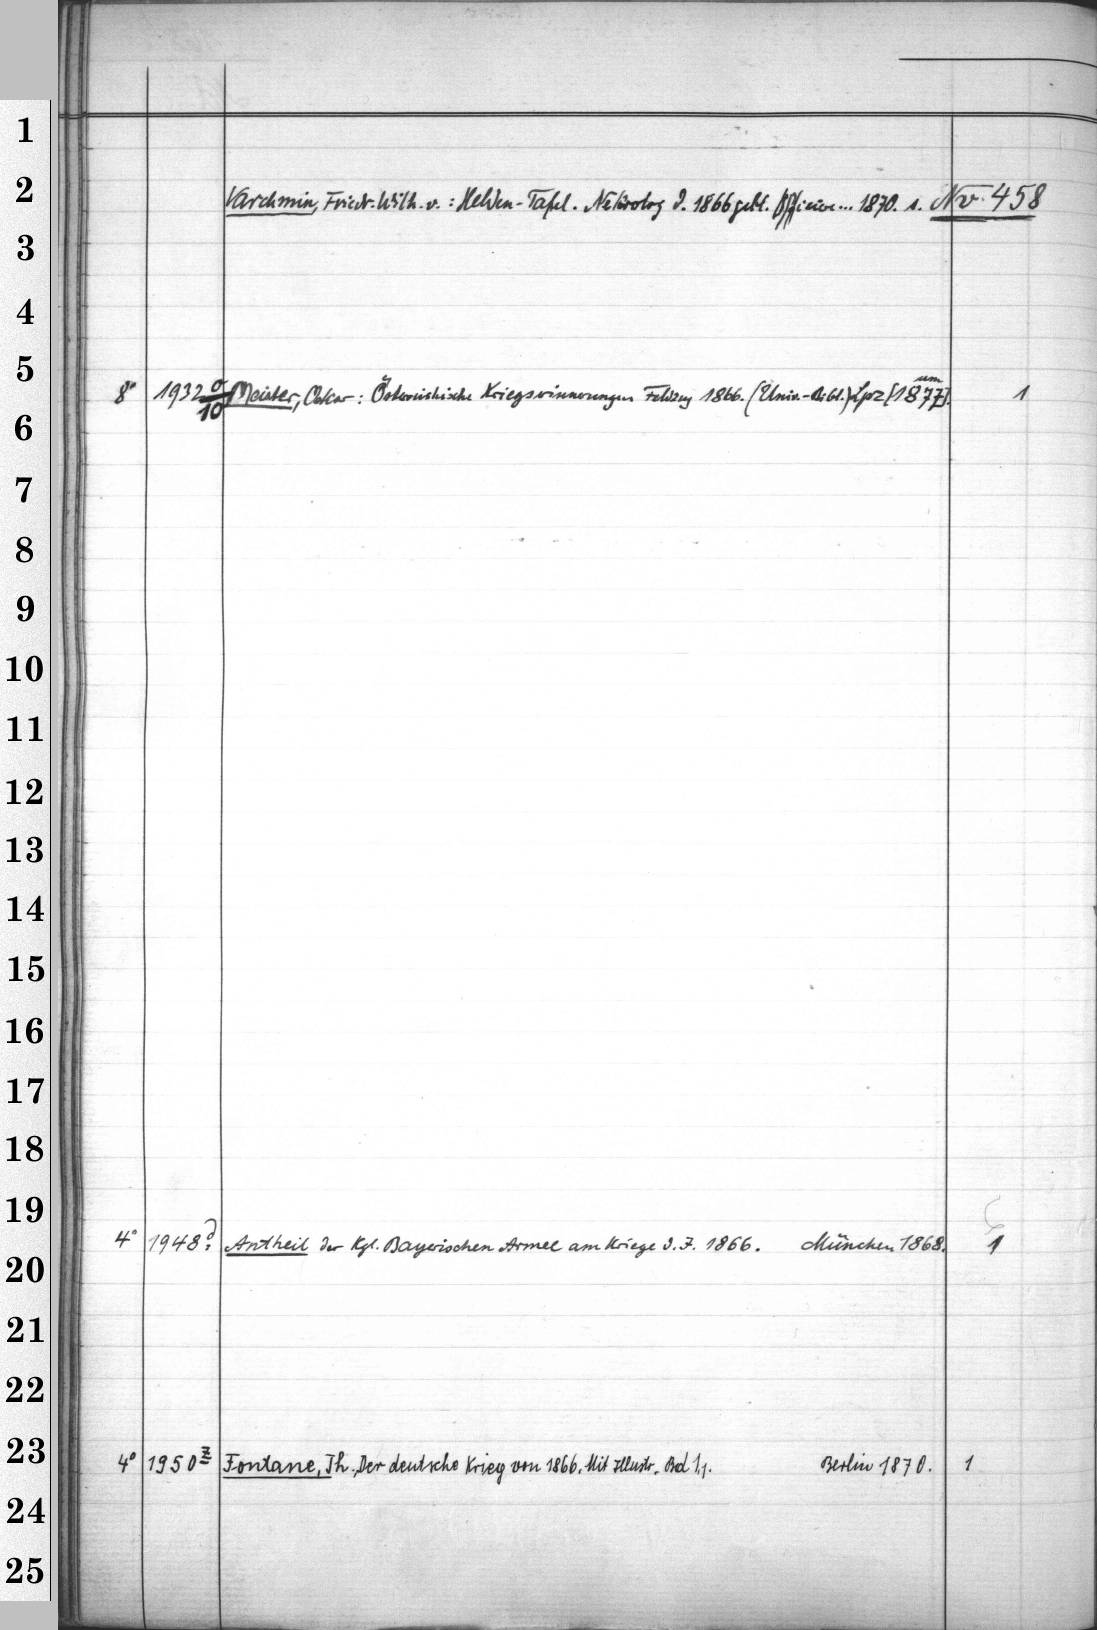 1
2
Varchmin, Friedr. Wilh. v. : Helden-Tafel. Nekrolog d. 1866 gebl. Offiziere... 1870. s. Nv 458
3
4
5
8° 1932 σ/10 Meister, Oskar: Österreichische Kriegserinnerungen Feldzug 1866. (Univ.-Bibl.) Lpz [um 1877]. 1
6
7
8
9
10
11
12
13
14
15
16
17
18
19
4° 1948? Antheil der Kgl. Bayerischen Armee am Kriege d. J. 1866. München 1868. 1
20
21
22
23
4° 1950 z Fontane, Th., Der deutsche Krieg von 1866. Mit Illustr. Bd 1,1. Berlin 1870. 1
24
25